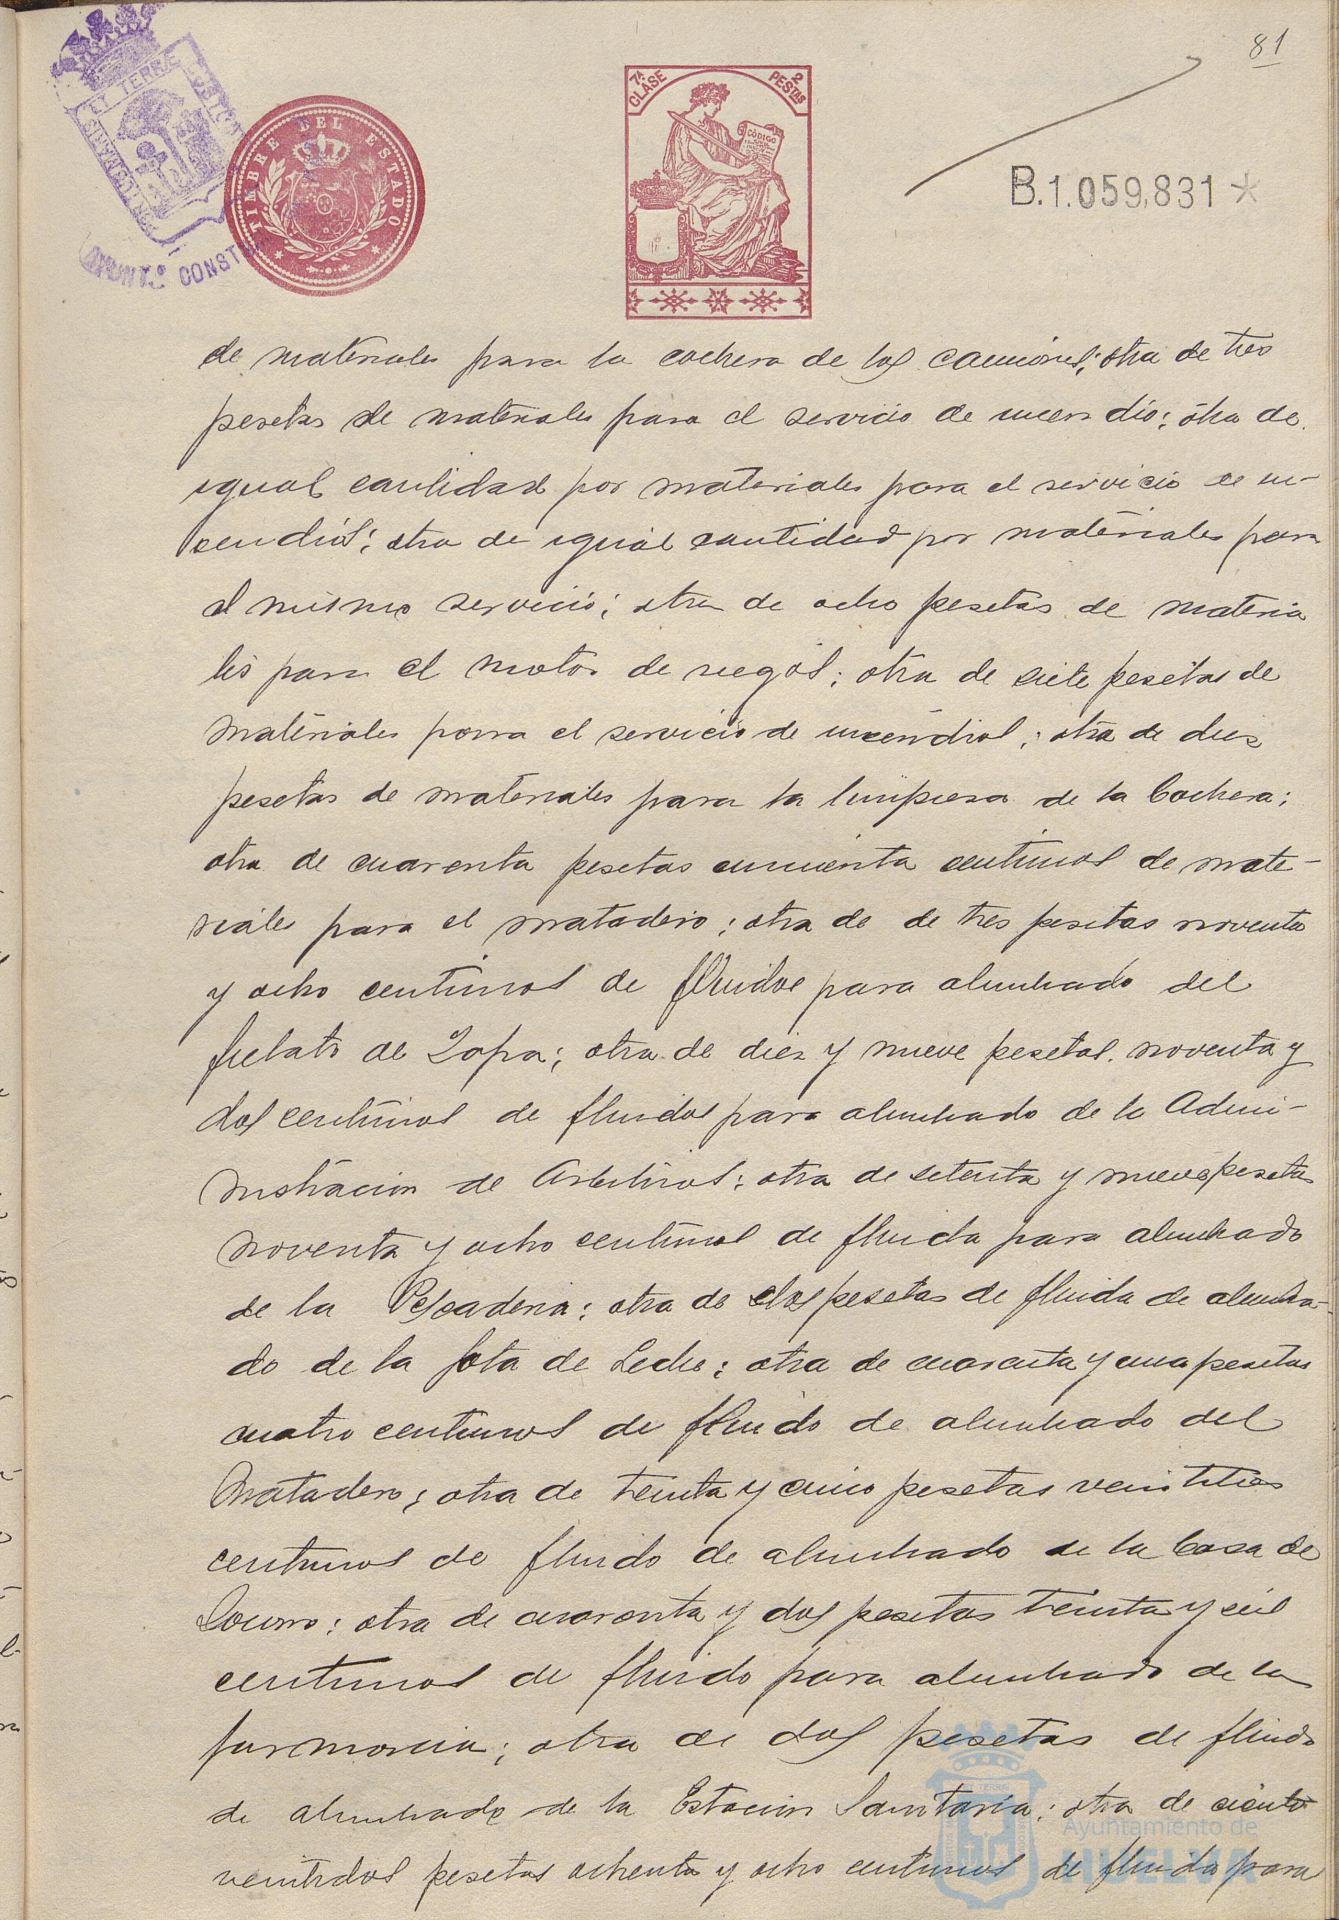 81
7ª CLASE
2 PESTAS
CÓDIGO
TIMBRE DEL ESTADO
ET TERRÆ CUSTODIA
PORTUS MARIS
AYUNTº CONST
B.1.059,831 *
de materiales para la cochera de los camiones; otra de tres
pesetas de materiales para el servicio de incendio; otra de
igual cantidad por materiales para el servicio de in-
cendios; otra de igual cantidad por materiales para
el mismo servicio; otra de ocho pesetas de materia
les para el motor de riegos; otra de siete pesetas de
materiales para el servicio de incendios; otra de diez
pesetas de materiales para la limpiesa de la Cochera;
otra de cuarenta pesetas cincuenta centimos de mate-
riales para el matadero; otra de de tres pesetas noventa
y ocho centimos de fluidos para alumbrado del
fielato de Zafra; otra de diez y nueve pesetas noventa y
dos centimos de fluidos para alumbrado de la Admi-
nistracion de Arbitrios; otra de setenta y nueve pesetas
noventa y ocho centimos de fluido para alumbrado
de la Pescaderia; otra de dos pesetas de fluido de alumbra-
do de la Gota de Leche; otra de cuarenta y una pesetas
cuatro centimos de fluido de alumbrado del
Matadero; otra de treinta y cinco pesetas veintitres
centimos de fluido de alumbrado de la Casa de
Socorro; otra de cuarenta y dos pesetas treinta y seis
centimos de fluido para alumbrado de la
farmacia; otra de dos pesetas de fluido
de alumbrado de la Estacion Sanitaria; otra de ciento
veintidos pesetas ochenta y ocho centimos de fluido para
Ayuntamiento de
HUELVA